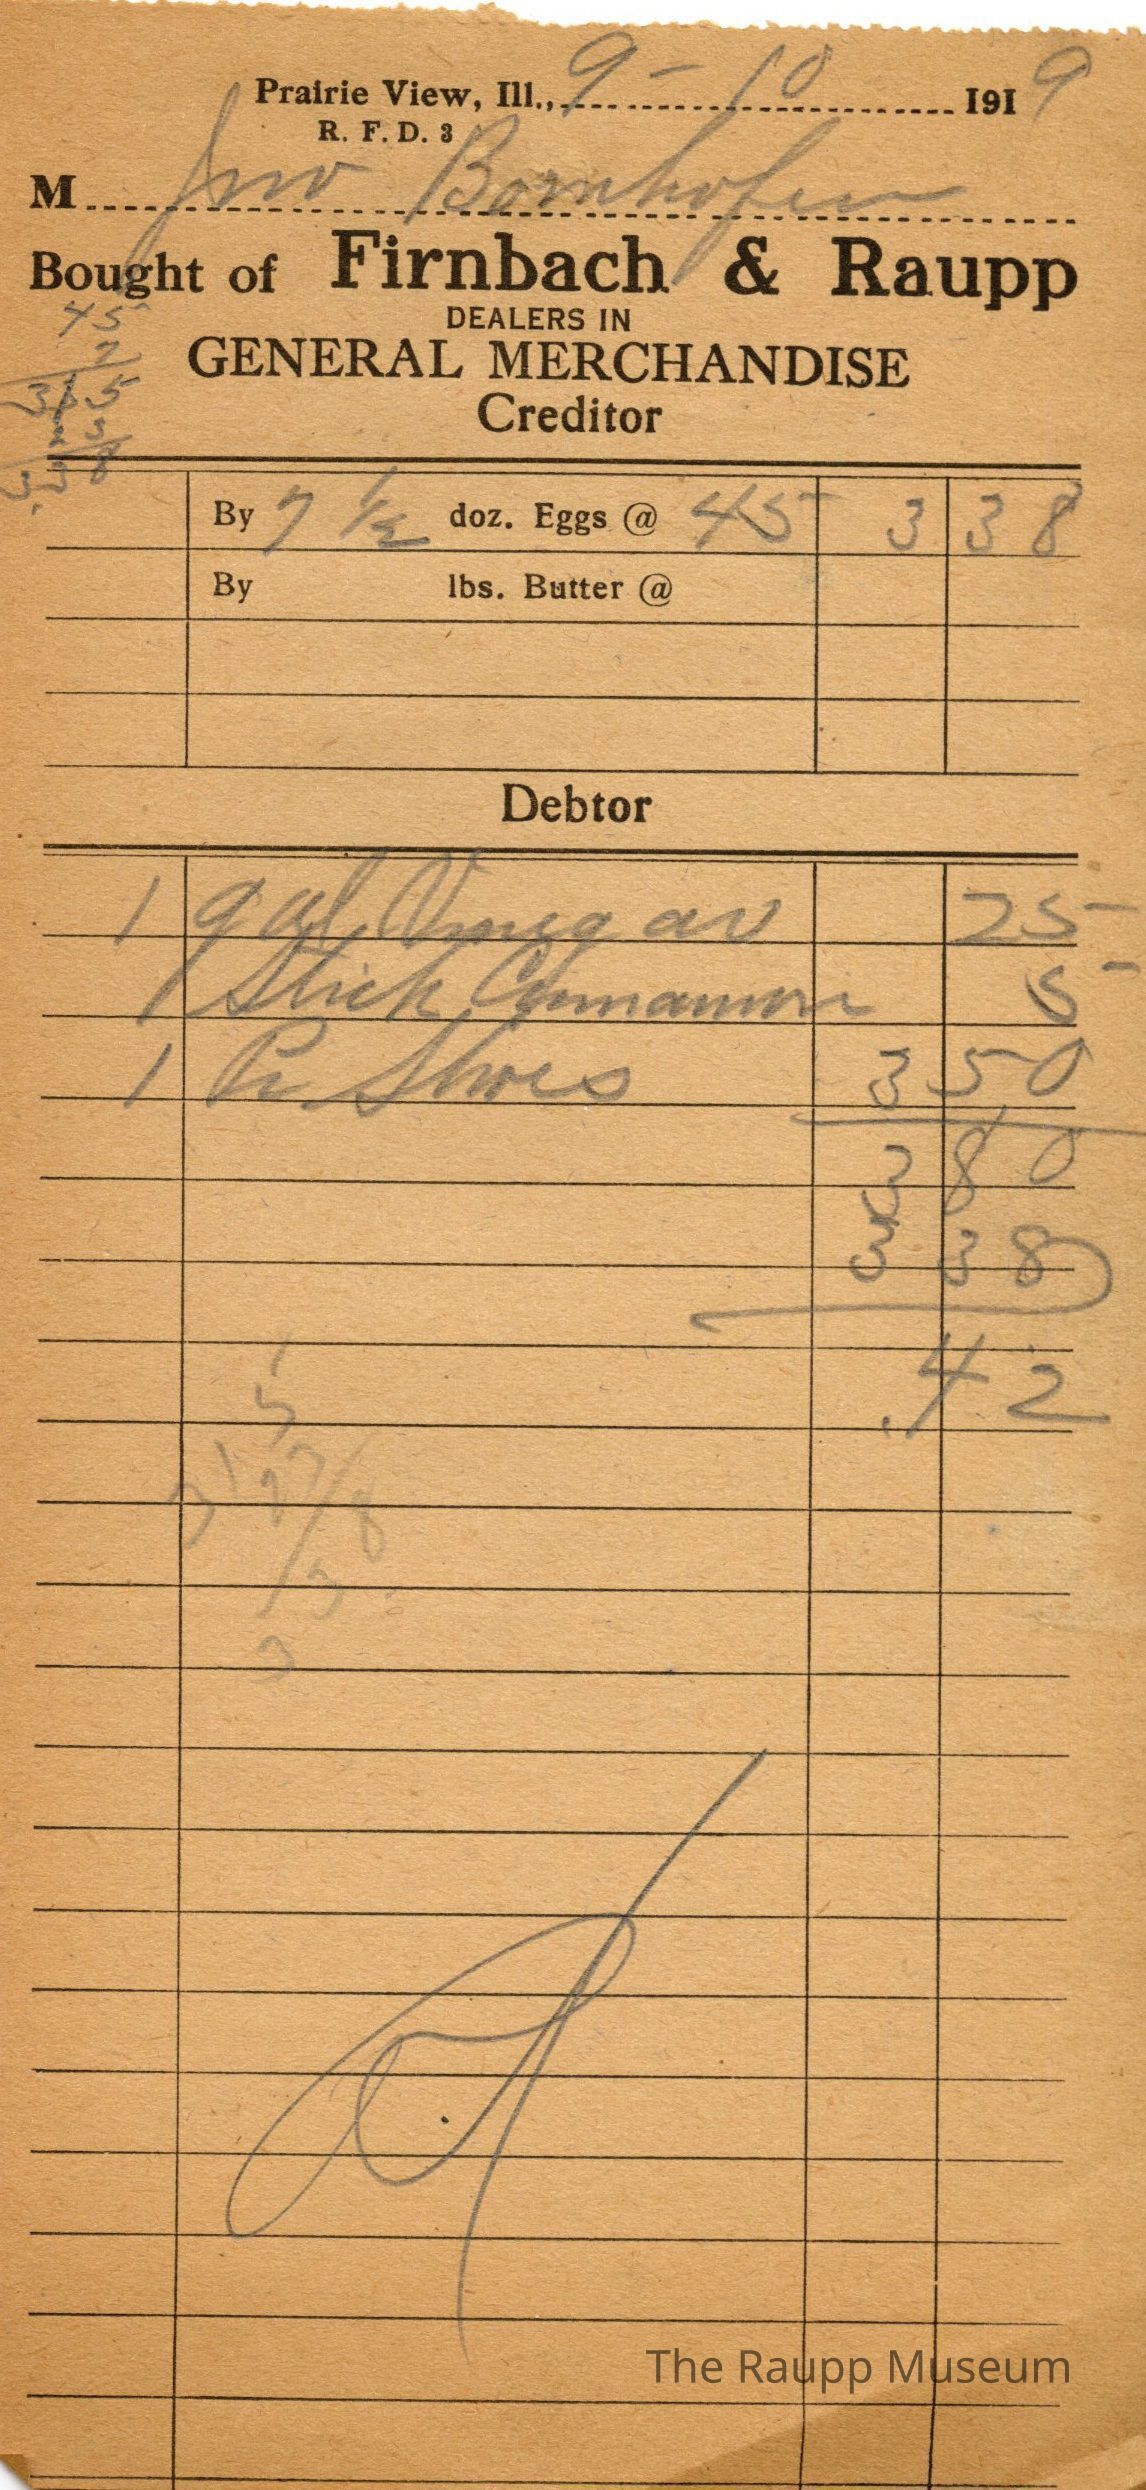 Prairie View, Ill., 9-10 1919
R. F. D. 3
M Jno Bornhofen
Bought of Firnbach & Raupp
DEALERS IN
GENERAL MERCHANDISE
Creditor
45
7
315
23
3.38
By 7 1/2 doz. Eggs @ 45 3 38
By lbs. Butter @
Debtor
1 gal Vinegar 25
1 Stick Cinnamon 5
1 Pr Shoes 3 50
3 80
3 38
.42
The Raupp Museum